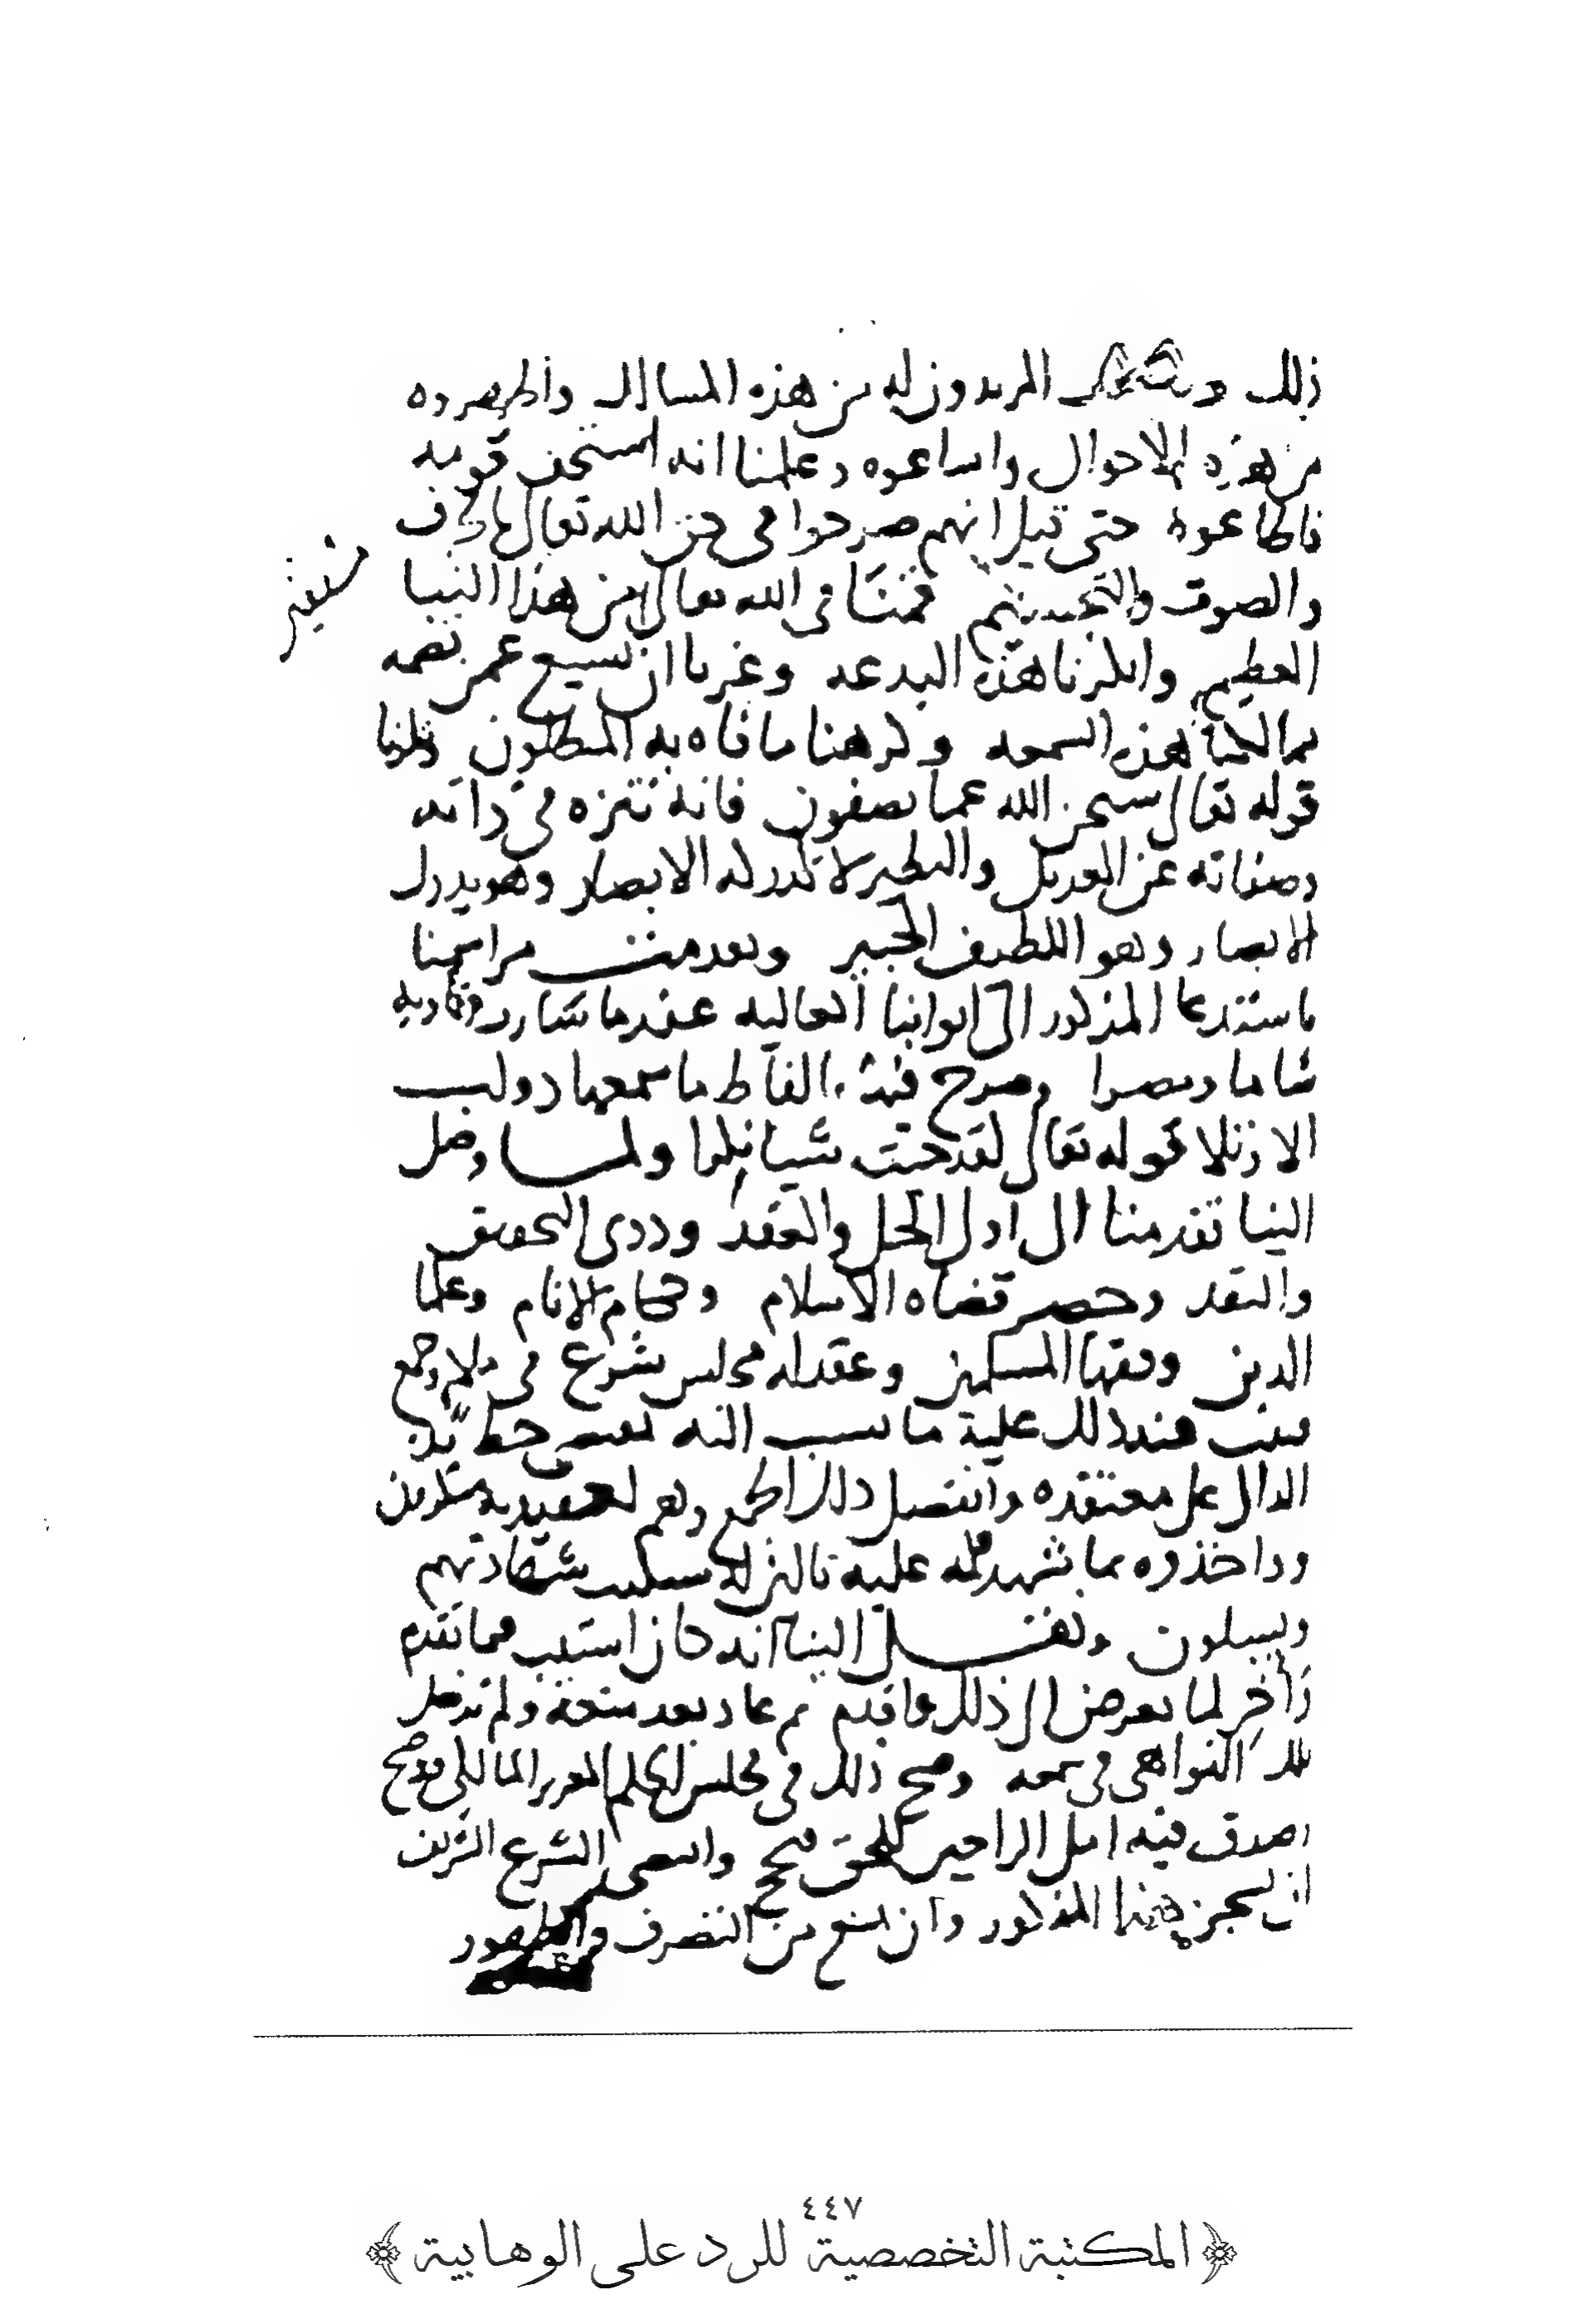 ذلك المريدون له من هذه المسائل واظهروه
من هذه الاحوال واساعوه وعلمنا انه استخف قومه
فاطاعوه حتى قيل انهم صرحوا في حق الله تعالى بالحرف
والصوت والتجسيم فقمنا في الله تعالى من هذا النبا
العظيم وانكرنا هذه البدعه وغرنا ان يسيع عمن تضمه
ممالكنا هذه السمعه وكرهنا ما فاه به المبطلون وتلونا
قوله تعالى سبحن الله عما يصفون فانه تنزه في ذاته
وصفاته عن العديل والنظير لا تدركه الابصار وهو يدرك
الابصار وهو اللطيف الخبير وتقدمت مراسمنا
باستدعا المذكور الى ابوابنا العاليه عندما سارت فتاويه
شاما ومصرا وصرح فيها بالفاظ ما سمعها ذو لب
الا وتلا قوله تعالى لقد جئت شيا نكرا ولما وصل
الينا تقدمنا الى اولى الحل والعقد وذوى التحقيق
والنقد وحضر قضاه الاسلام وحكام الانام وعلما
الدين وفقها المسلمين وعقد له مجلس شرع في ملا وجمع
فثبت عند ذلك عليه ما نسب اليه بمقتضى خط يده
الدال على معتقده وانفصل ذلك الجمع وهم لعقيدته منكرون
وواخذوه بما شهد به قلمه عليه تالين ستكتب شهادتهم
ويسيلون ونقل الينا انه كان استتيب فيما تقدم
واخر لما تعرض الى ذلك واقدم ثم عاد بعد منعه ولم تدخل
تلك النواهى في سمعه وصح ذلك في مجلس الحكم العزيز المالكى
الشرع الشريف
ان يسجن هذا المذكور وان يمنع من التصرف والظهور
٤٤٧
المكتبة التخصصية للرد على الوهابية